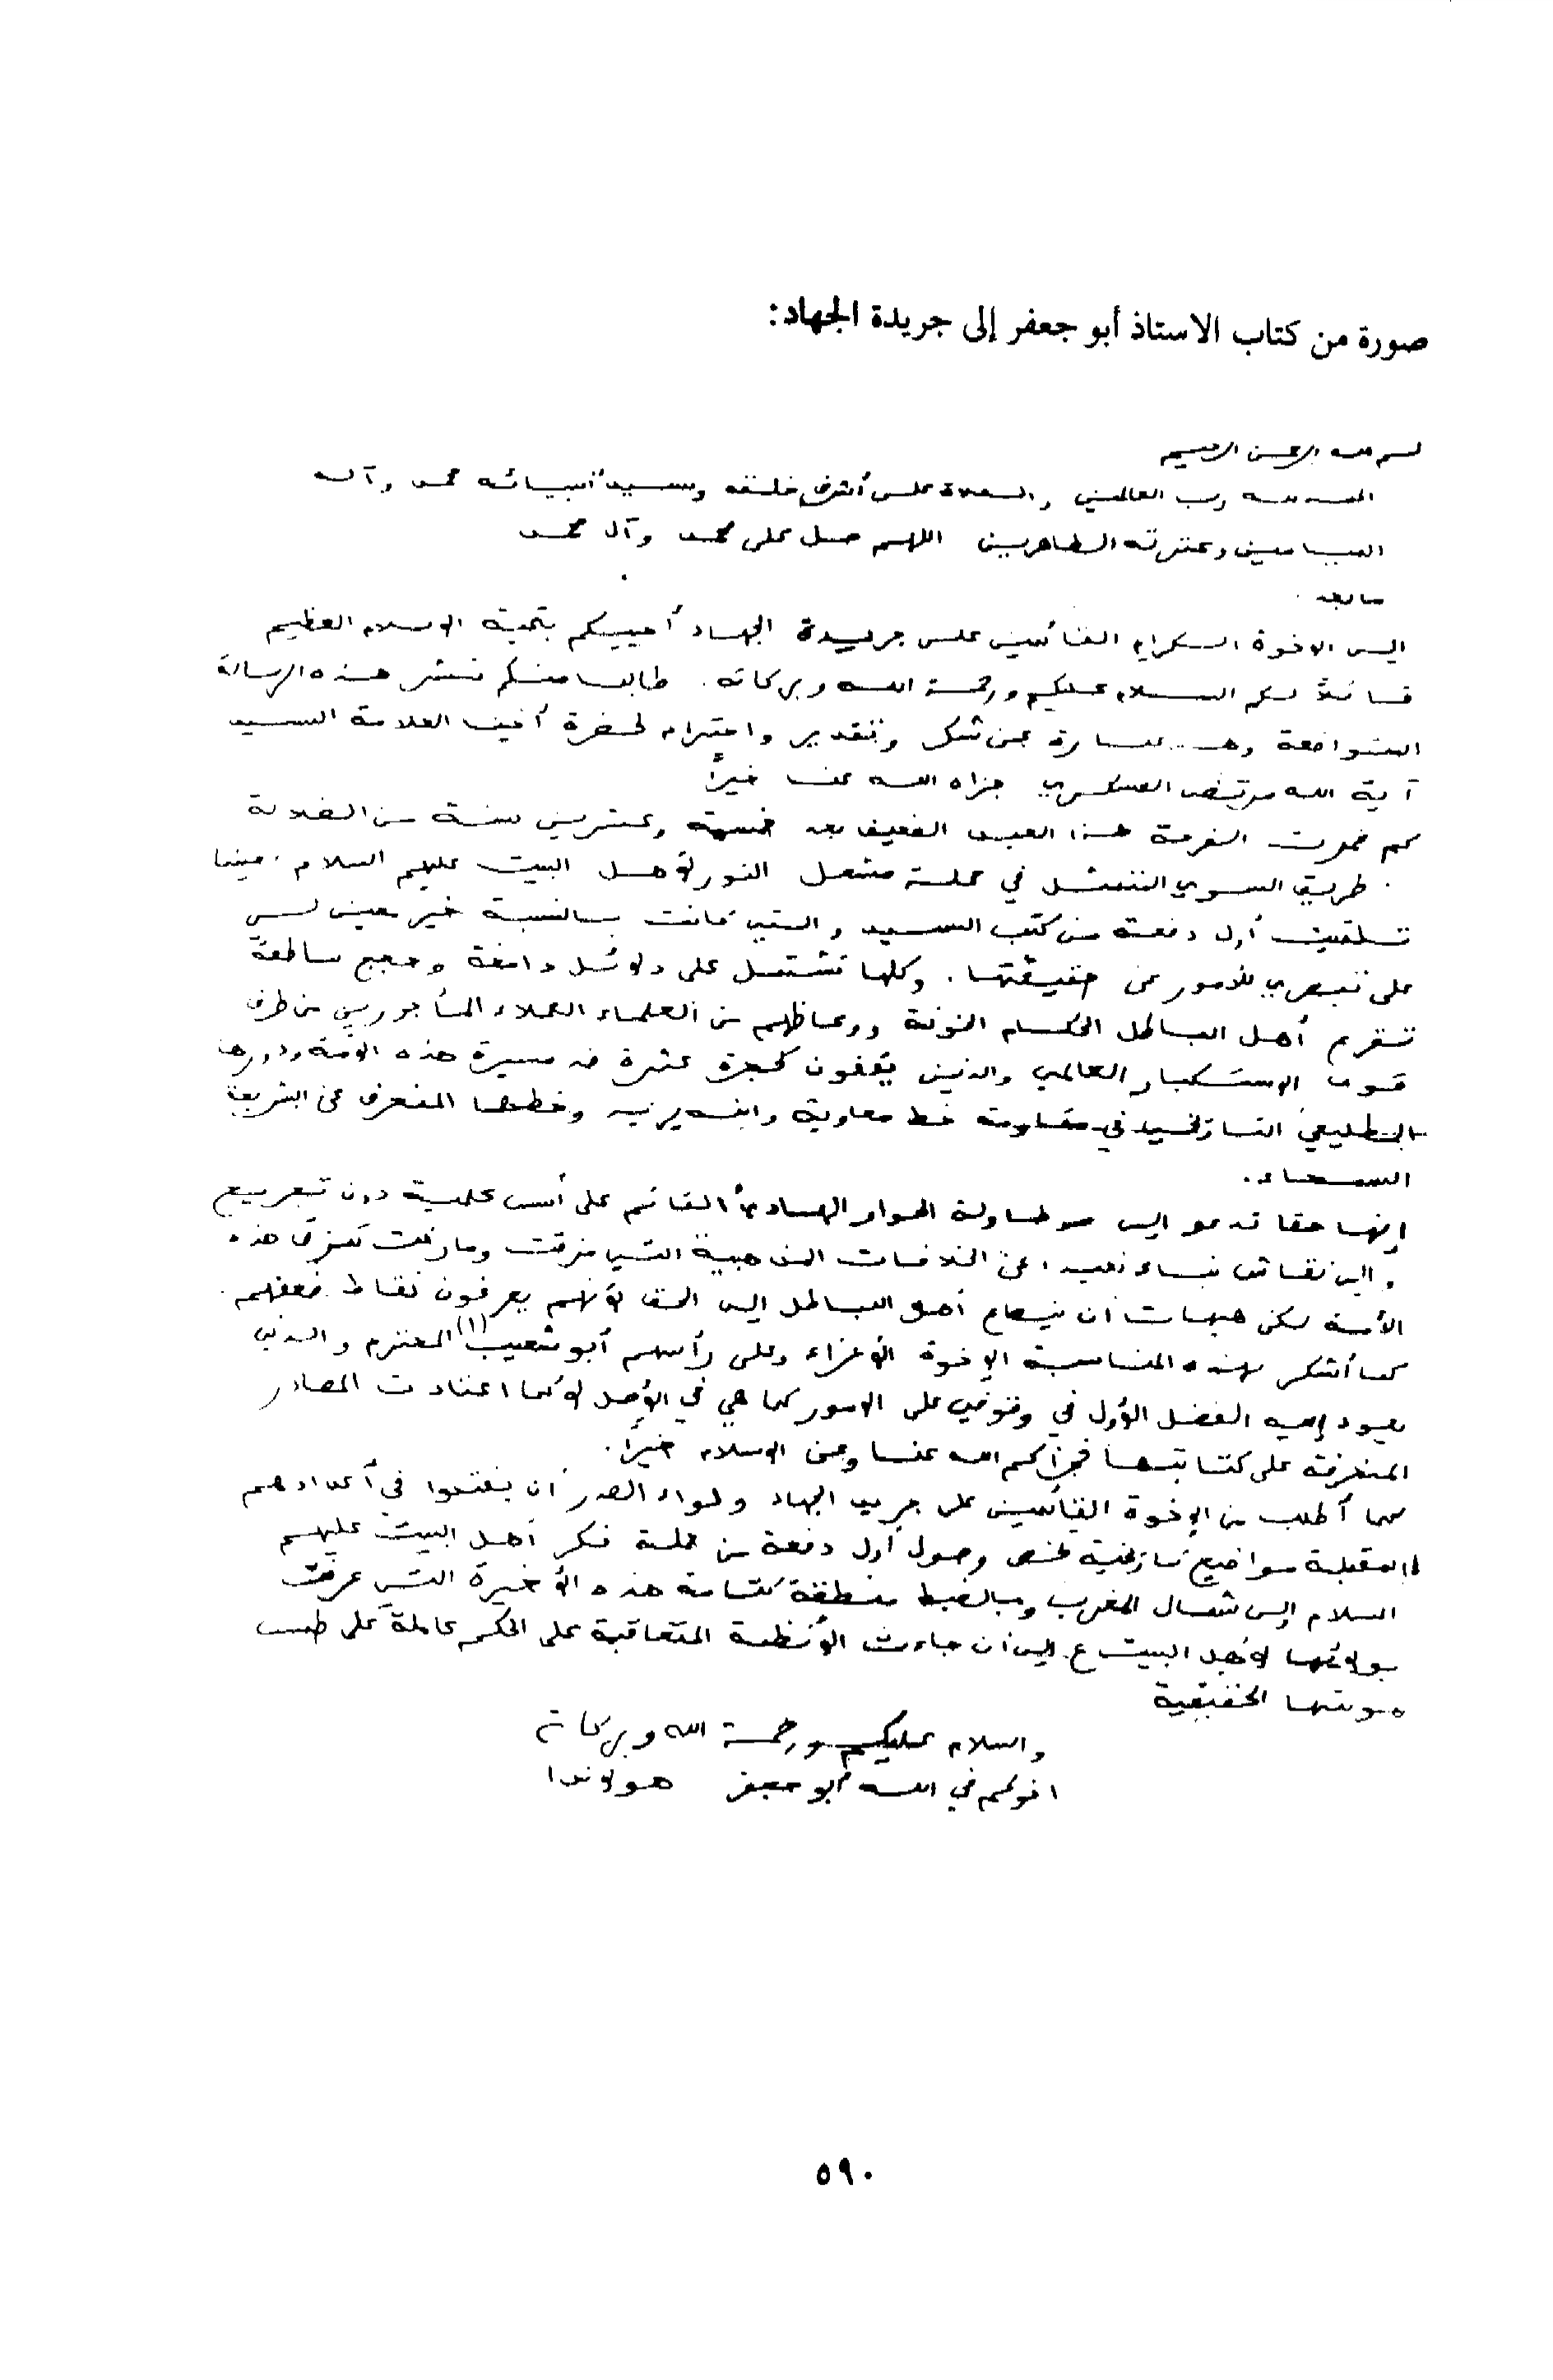 صورة من كتاب الاستاذ أبو جعفر إلى جريدة الجهاد:
بسم الله الرحمن الرحيم
الحمد لله رب العالمين والصلاة على أشرف خلقه وسيد أنبيائه محمد وآله
الميامين وعترته الطاهرين اللهم صل على محمد وآل محمد
ما بعد
إلى الاخوة الكرام القائمين على جريدة الجهاد أحييكم بتحية الاسلام العظيم
قائلاً لكم السلام عليكم ورحمة الله وبركاته. طالبا منكم نشر هذه الرسالة
المتواضعة وهي عبارة عن شكر وتقدير واحترام لحضرة العلامة السيد
آية الله مرتضى العسكري جزاه الله عنا خيراً
هذا العبد الضعيف بعد خمسة وعشرين سنة من الضلالة
طريق السوي المتمثل في حملة مشعل النور لأهل البيت عليهم السلام، حينما
تلقيت أول دفعة من كتب السيد والتي كانت بالنسبة خير معين لي
على تبصري للأمور عن حقيقتها. وكلها تشتمل على دلائل دامغة وحجج ساطعة
أهل الباطل الحكام الخونة ووعاظهم من العلماء العملاء المأجورين من طرف
قوى الاستكبار العالمي والذين يقفون كحجرة عثرة ضد مسيرة هذه الأمة ودورها
الطليعي التاريخي في مقاومة خط معاوية وابنه يزيد وخطهما المنحرف عن الشريعة
السمحاء.
إنها حقا تدعو إلى الحوار الهادئ القائم على أسس علمية دون تجريح
وإلى نقاش بناء بعيدا عن الخلافات المذهبية التي مزقت وما زالت تمزق هذه
الأمة لكن هيهات أن أهل الباطل إلى الحق لأنهم يعرفون نقاط ضعفهم.
كما أشكر بهذه المناسبة الإخوة الأعزاء وعلى رأسهم أبو شعيب(١) المحترم والذي
يعود إليه الفضل الأول في وقوفي على الامور كما هي في الأصل لا كما اعتادت المصادر
المنحرفة على كتابتها فجزاكم الله عنا وعن الإسلام خيراً.
كما أطلب من الإخوة القائمين على جريدة الجهاد ولواء الصدر أن في أعدادهم
المقبلة مواضيع تاريخية تخص وصول أول دفعة من حملة فكر أهل البيت عليهم
السلام إلى شمال المغرب وبالضبط منطقة كتامة هذه الأخيرة التي عرفت
بولائها لأهل البيت ع إلى أن جاءت الأنظمة المتعاقبة على الحكم عاملة على طمس
هويتها الحقيقية
والسلام عليكم ورحمة الله وبركاته
اخوكم في الله أبو جعفر هولاندا
٥٩٠